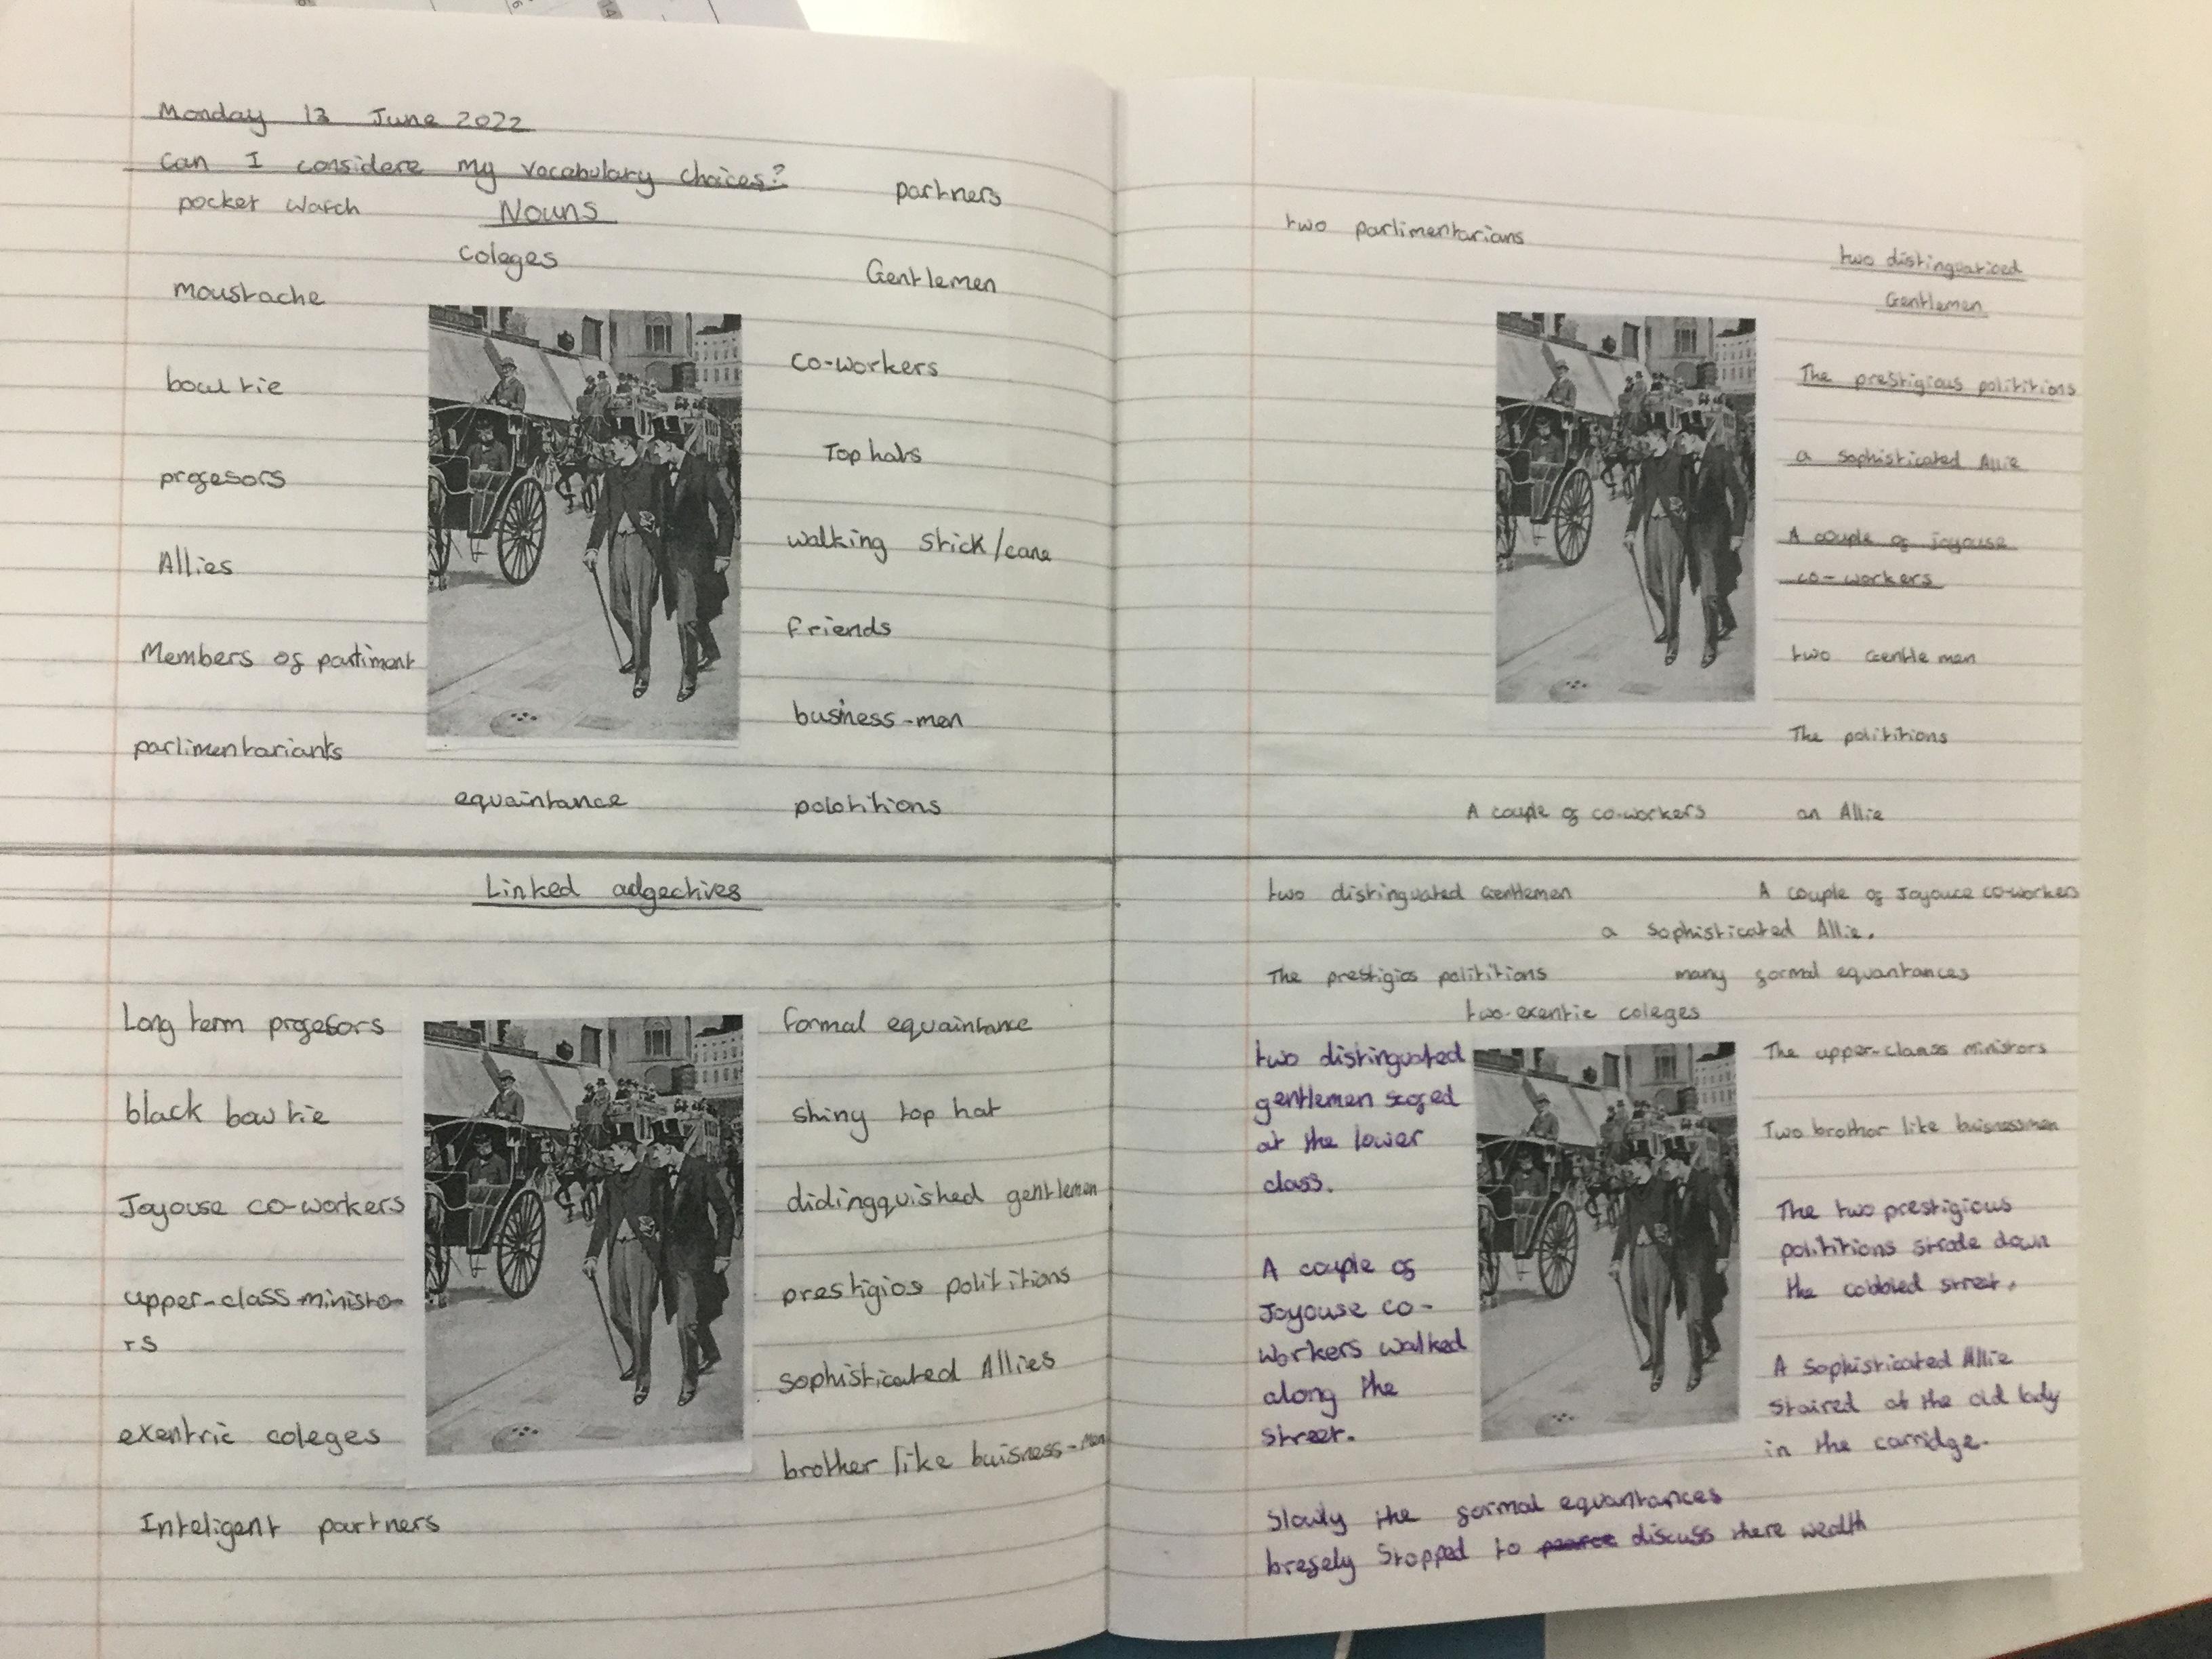 Monday 13 June 2022
Can I considere my vocabulary choices?
pocket watch
Nouns
partners
coleges
Gentlemen
moustache
bow tie
co-workers
progesors
Top hats
Allies
walking stick/cane
Members of partiment
friends
parlimentariants
business-men
equaintance
polotitions
Linked adgectives
Long term progesors
formal equaintance
black bow tie
shiny top hat
Joyouse co-workers
didingquished gentlemen
upper-class-ministo-
rs
prestigios polititions
exentric coleges
sophisticated Allies
Inteligent partners
brother like buisness-men
two parlimentarians
two distinguaticed
Gentlemen
The prestigious polititions
a sophisticated Allie
A couple of joyouse
co-workers
two Gentlemen
The polititions
A couple of co-workers
an Allie
two distinguated Gentlemen
A couple of Joyouce co-workers
a sophisticated Allie.
The prestigios polititions
many formal equantances
two exentic coleges
two distinguated
gentlemen scofed
at the lower
class.
A couple of
Joyouse co-
workers walked
along the
street.
The upper-claass ministors
Two brother like buisnessmen
The two prestigious
polititions strode down
the cobbled street.
A Sophisticated Allie
Staired at the old lady
in the carridge.
Slowly the formal equantances
brefely Stopped to discuss there wealth